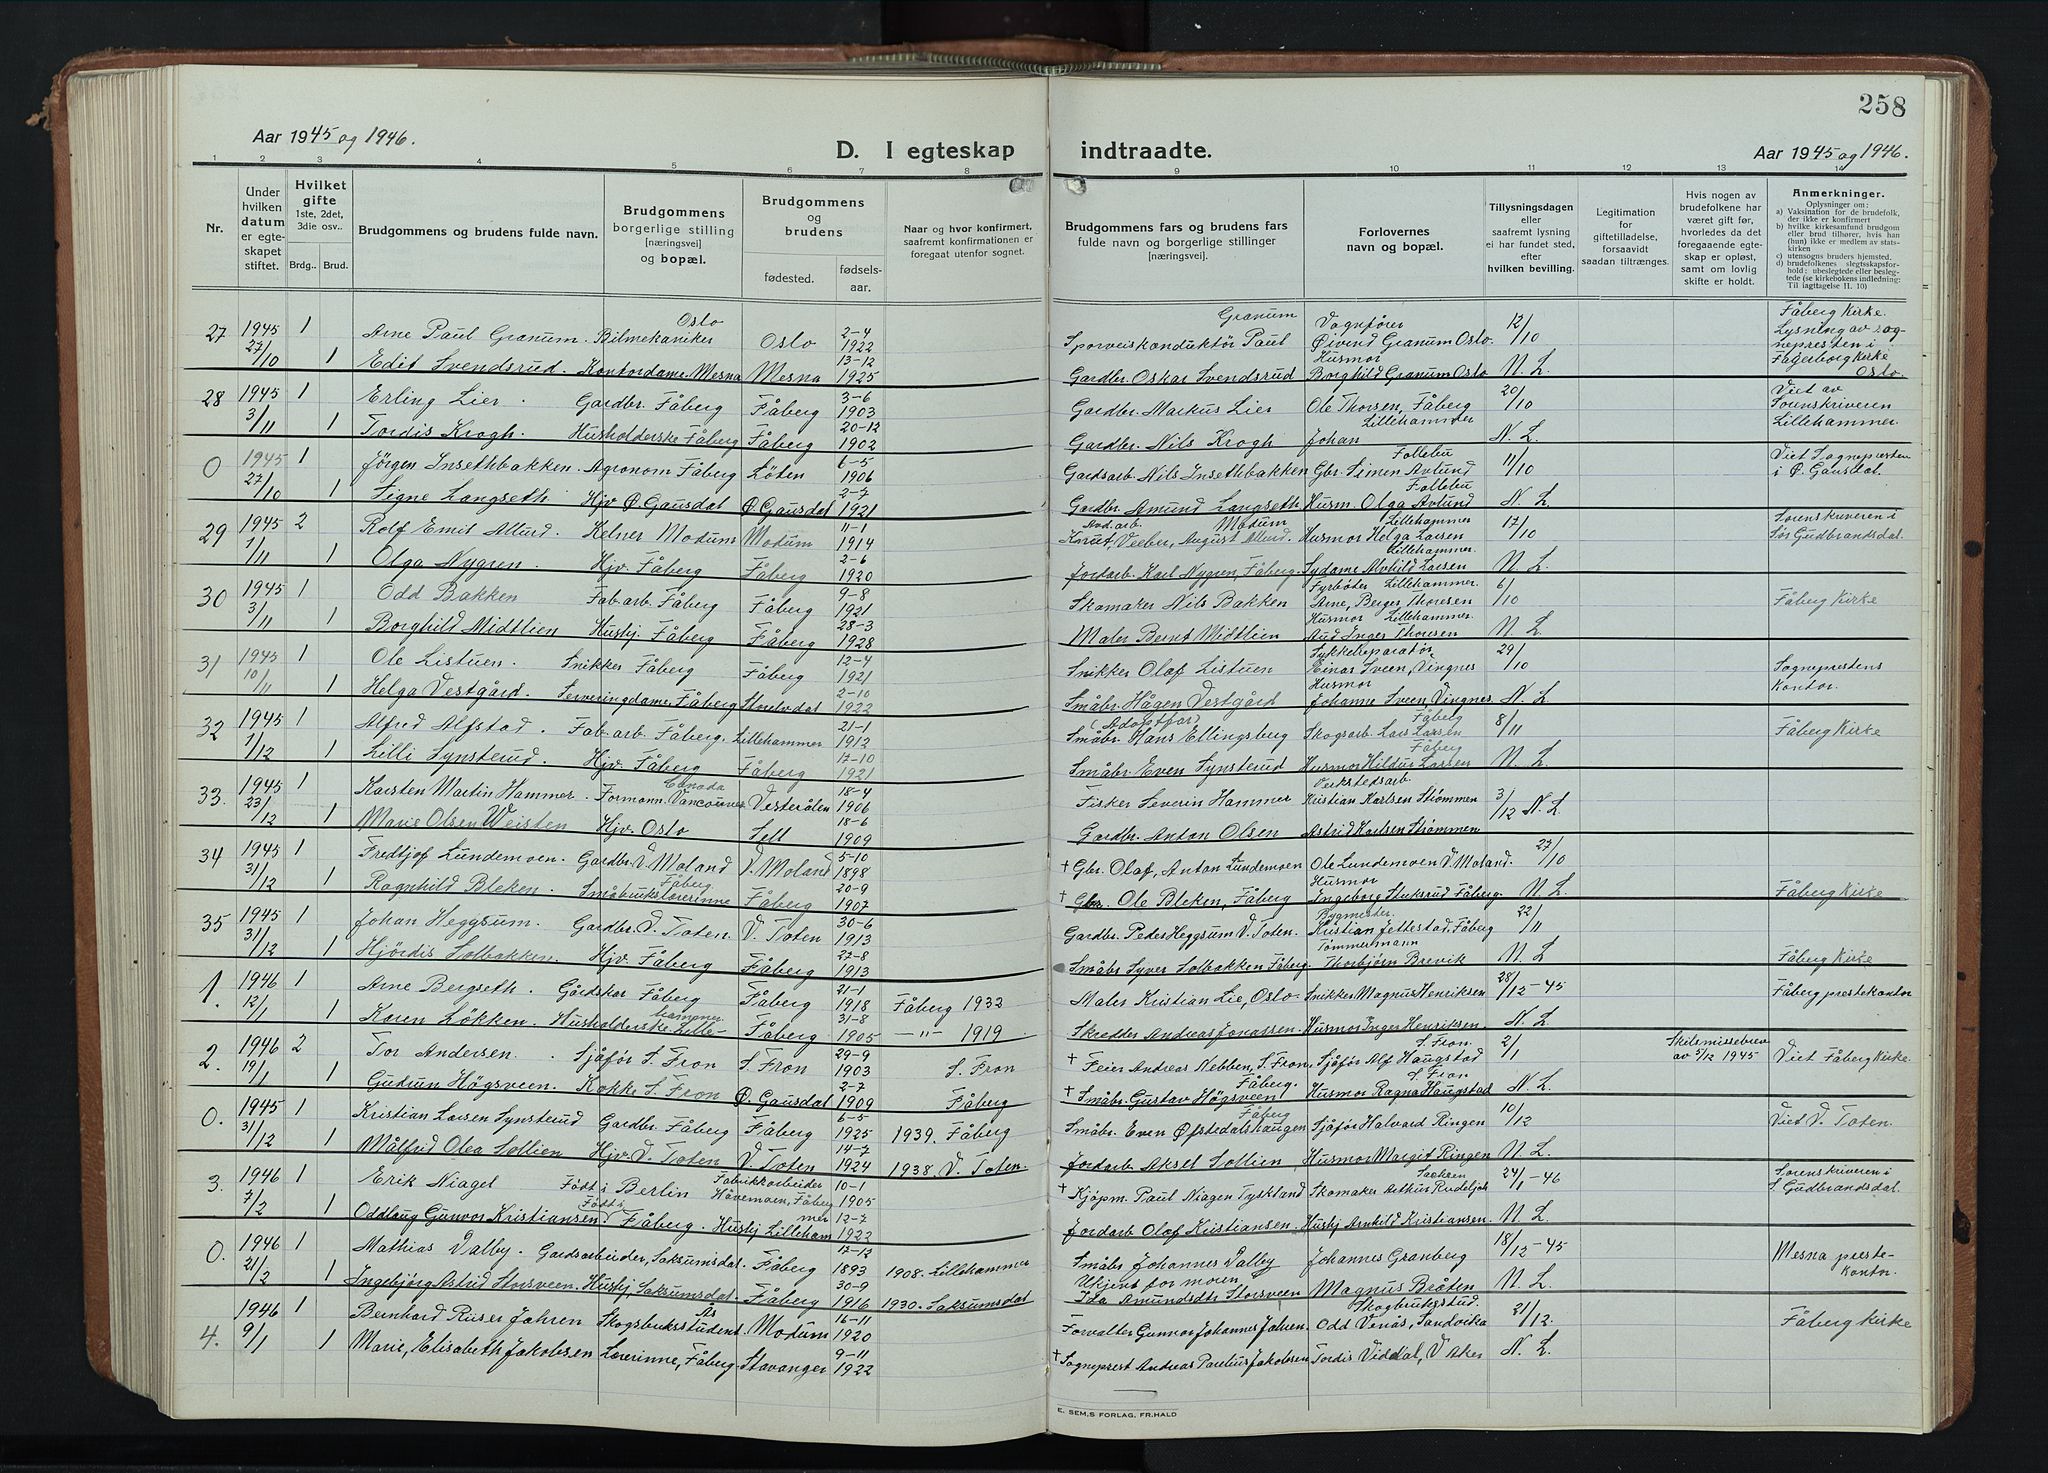 258
Aar 1945 og 1946.
D. I egteskap indtraadte.
Aar 1945 og 1946.
1 2 3 4 5 6 7 8 9 10 11 12 13 14
Nr.
Under hvilken datum er egteskapet stiftet.
Hvilket gifte 1ste, 2det, 3die osv..
Brdg.. Brud.
Brudgommens og brudens fulde navn.
Brudgommens borgerlige stilling [næringsvei] og bopæl.
Brudgommens og brudens
fødested. fødsels-aar.
Naar og hvor konfirmert, saafremt konfirmationen er foregaat utenfor sognet.
Brudgommens fars og brudens fars fulde navn og borgerlige stillinger [næringsvei].
Forlovernes navn og bopæl.
Tillysningsdagen eller saafremt lysning ei har fundet sted, efter hvilken bevilling.
Legitimation for giftetilladelse, forsaavidt saadan tiltrænges.
Hvis nogen av brudefolkene har været gift før, hvorledes da det foregaaende egteskap er opløst, samt om lovlig skifte er holdt.
Anmerkninger.
Oplysninger om:
a) Vaksination for de brudefolk, der ikke er konfirmert
b) hvilke kirkesamfund brudgom eller brud tilhører, hvis han (hun) ikke er medlem av statskirken
c) utensogns bruders hjemsted.
d) brudefolkenes slegtsskapsforhold: ubeslegtede eller beslegtede (se kirkebokens indledning: Til iagttagelse II. 10)
27 1945 27/10 1 Arne Paul Granum. Bilmekaniker Oslo Oslo 2-4 1922 Sporveiskonduktör Paul Granum Vognfører Øivind Granum Oslo. 12/10 Fåberg Kirke. Lysning av sognepresten i Fagerborg kirke Oslo.
1 Edit Svendsrud. Kontordame Mesna Mesna 13-12 1925 Gardbr. Oskar Svendsrud Husmor Borghild Granum Oslo N. L.
28 1945 3/11 1 Erling Lier. Gardbr. Fåberg Fåberg 3-6 1903 Gardbr. Markus Lier Ole Thorsen, Fåberg 20/10 Viet av Sorenskriveren Lillehammer.
1 Tordis Krogh. Husholderske Fåberg Fåberg 20-12 1902 Gardbr. Nils Krogh Johan Lillehammer N. L.
0 1945 27/10 1 Jörgen Insethbakken. Agronom Fåberg Löten 6-5 1906 Gardsarb. Nils Insethbakken Gbr. Simen Avlund Follebu 11/10 Viet Sognepresten i Ø. Gausdal.
1 Signe Langseth Hjv. Ø. Gausdal Ø. Gausdal 2-7 1921 Gardbr. Amund Langseth Husm. Olga Avlund Follebu N. L.
29 1945 1/11 2 Rolf Emil Allurd. Kelner Modum Modum 11-1 1914 August Allurd. Modum Husmor Helga Larsen Lillehammer 17/10 Sorenskriveren i Sør Gudbrandsdal.
1 Olga Nygren. Hjv. Fåberg Fåberg 2-6 1920 Jordarb. Karl Nygren, Fåberg. Sydame Alvhild Larsen Lillehammer. N. L.
30 1945 3/11 1 Odd Bakken Fab.arb. Fåberg Fåberg 9-8 1921 Skomaker Nils Bakken Fyrböter Lillehammer. Arne, Berger Thoresen 6/10 Fåberg Kirke
1 Borghild Midtlien Hushj. Fåberg Fåberg 28-3 1928 Maler Bernt Midtlien Husmor Lillehammer. Aud Inger Thoresen N. L.
31 1945 10/11 1 Ole Listuen. Snikker Fåberg Fåberg 12-4 1921 Snikker Olaf Listuen Sykkelreparatør Einar Sveen, Vingnes 29/10 Sogneprestens Kontor.
1 Helga Vestgård. Serveringdame, Fåberg 2-10 1922 Småbr. Hågen Vestgård Husmor Johanne Sveen Vingnes N. L.
32 1945 1/12 1 Alfred Alfstad. Fab.arb. Fåberg. Lillehammer 21-1 1912 (Adoptfar) Småbr. Hans Ellingsberg Skogsarb. Lars Larsen Fåberg 8/11 Fåberg Kirke
1 Lilli Synsterud. Hjv. Fåberg Fåberg 17-10 1921 Småbr. Even Synsterud Husmor Hildur Larsen Fåberg N. L.
33. 1945 23/12 1 Karsten Martin Hammer. Formann. Vancouver Canada Vesterålen 18-4 1906 Fisker Severin Hammer Verkstedsarb. Kristian Karlsen Strømmen 3/12 N. L.
1 Marie Olsen Weisten Hjv. Oslo Sell 18-6 1909 Gardbr. Anton Olsen Astrid Karlsen Strømmen
34 1945 31/12 1 Fredtjof Lundemoen. Gardbr. V. Moland V. Moland 5-10 1898 † Gbr. Olaf, Anton Lundemoen Ole Lundemoen V. Moland. 27/10
1 Ragnhild Bleken. Småbrukslærerinne Fåberg Fåberg 20-9 1907 † Gbr. Ole Bleken, Fåberg Husmor Ingeborg Stuksrud Fåberg. N. L. Fåberg Kirke
35 1945 31/12 1 Johan Heggsum. Gardbr. V. Toten. V. Toten 30-6 1913 Gardbr. Peder Heggsum V. Toten. Bygmester. Kristian Jettestad. Fåberg 22/11
1 Hjördis Solbakken. Hjv. Fåberg Fåberg 27-8 1913 Småbr Syver Solbakken Fåberg. Tømmermann Thorbjørn Brevik N. L. Fåberg Kirke
1. 1946 12/1 1 Arne Bergseth. Gårdskar Fåberg Fåberg 21-1 1918 Fåberg 1932 Maler Kristian Lie, Oslo- Snikker Magnus Henriksen 28/12-45 Fåberg prestekontor
1 Karen Løkken. Husholderske Lillehammer Fåberg 31-8 1905 -"- 1919 Skredder Andreas Jonassen. Husmor Inger Henriksen. N. L.
2. 1946 19/1 2 Tor Andersen. Sjåfør S. Fron S. Fron 29-9 1903 S. Fron † Feier Andreas Nebben, S. Fron. Sjåfør Alf Haugstad S. Fron. 2/1 Skilsmissebrev av 5/12 1945 Viet Fåberg Kirke.
1 Gudrun Högsveen. Kokke S. Fron Ø. Gausdal 2-7 1909 Fåberg † Småbr. Gustav Högsveen Fåberg. Husmor Ragna Haugstad S. Fron N. L.
0. 1945 31/12 1 Kristian Larsen Synsterud Gardbr. Fåberg Fåberg 6-5 1925 1939. Fåberg Småbr. Even Øfstedalshaugen Fåberg Sjåfør Halvard Ringen 10/12 Viet V. Toten.
1 Målfrid Olea Sollien Hjv. V. Toten V. Toten 14-7 1924 1938 V. Toten. Jordarb. Aksel Sollien Husmor Margit Ringen N. L.
3. 1946 7/2 1 Erik Niagel Født i Berlin Fabrikkarbeider Håvemoen, Fåberg 10-1 1905 † Kjöpm. Paul Niagen Tyskland Skomaker Arthur 24/1-46 Sorenskriveren i S. Gudbrandsdal.
1 Oddlaug Gunvor Kristiansen Født i Fåberg. Hushj. Lillehammer 12-7 1922 Jordarb Olaf Kristiansen. Hushj Arnhild Kristiansen. N. L.
0. 1946 21/2 1 Mathias Dalby. Gardsarbeider, Saksumsdal. Fåberg 17-12 1893 1908. Lillehammer Småbr Johannes Dalby Johannes Granberg 18/12-45 Mesna prestekontor.
1 Ingebjørg Astrid Storsveen. Hushj. Saksumsdal. Fåberg 30-9 1916 1930. Saksumsdal Ukjent for moren Ida Amundsdtr Storsveen Magnus Bråten N. L.
4. 1946 9/1 1 Bernhard Ruser Jahren Skogbruksstudent Ås Modum 16-11 1920 Forvalter Gunvor Johannes Jahren. Skogbruksstud. Odd Venås, Sandvika 21/12. Fåberg Kirke
1 Marie, Elisabeth Jakobsen Lærerinne, Fåberg Stavanger 9-11 1922 † Sogneprest Andreas Paulius Jakobsen Tordis Viddal, V. Aker N. L.
E. SEM,S FORLAG, FR.HALD